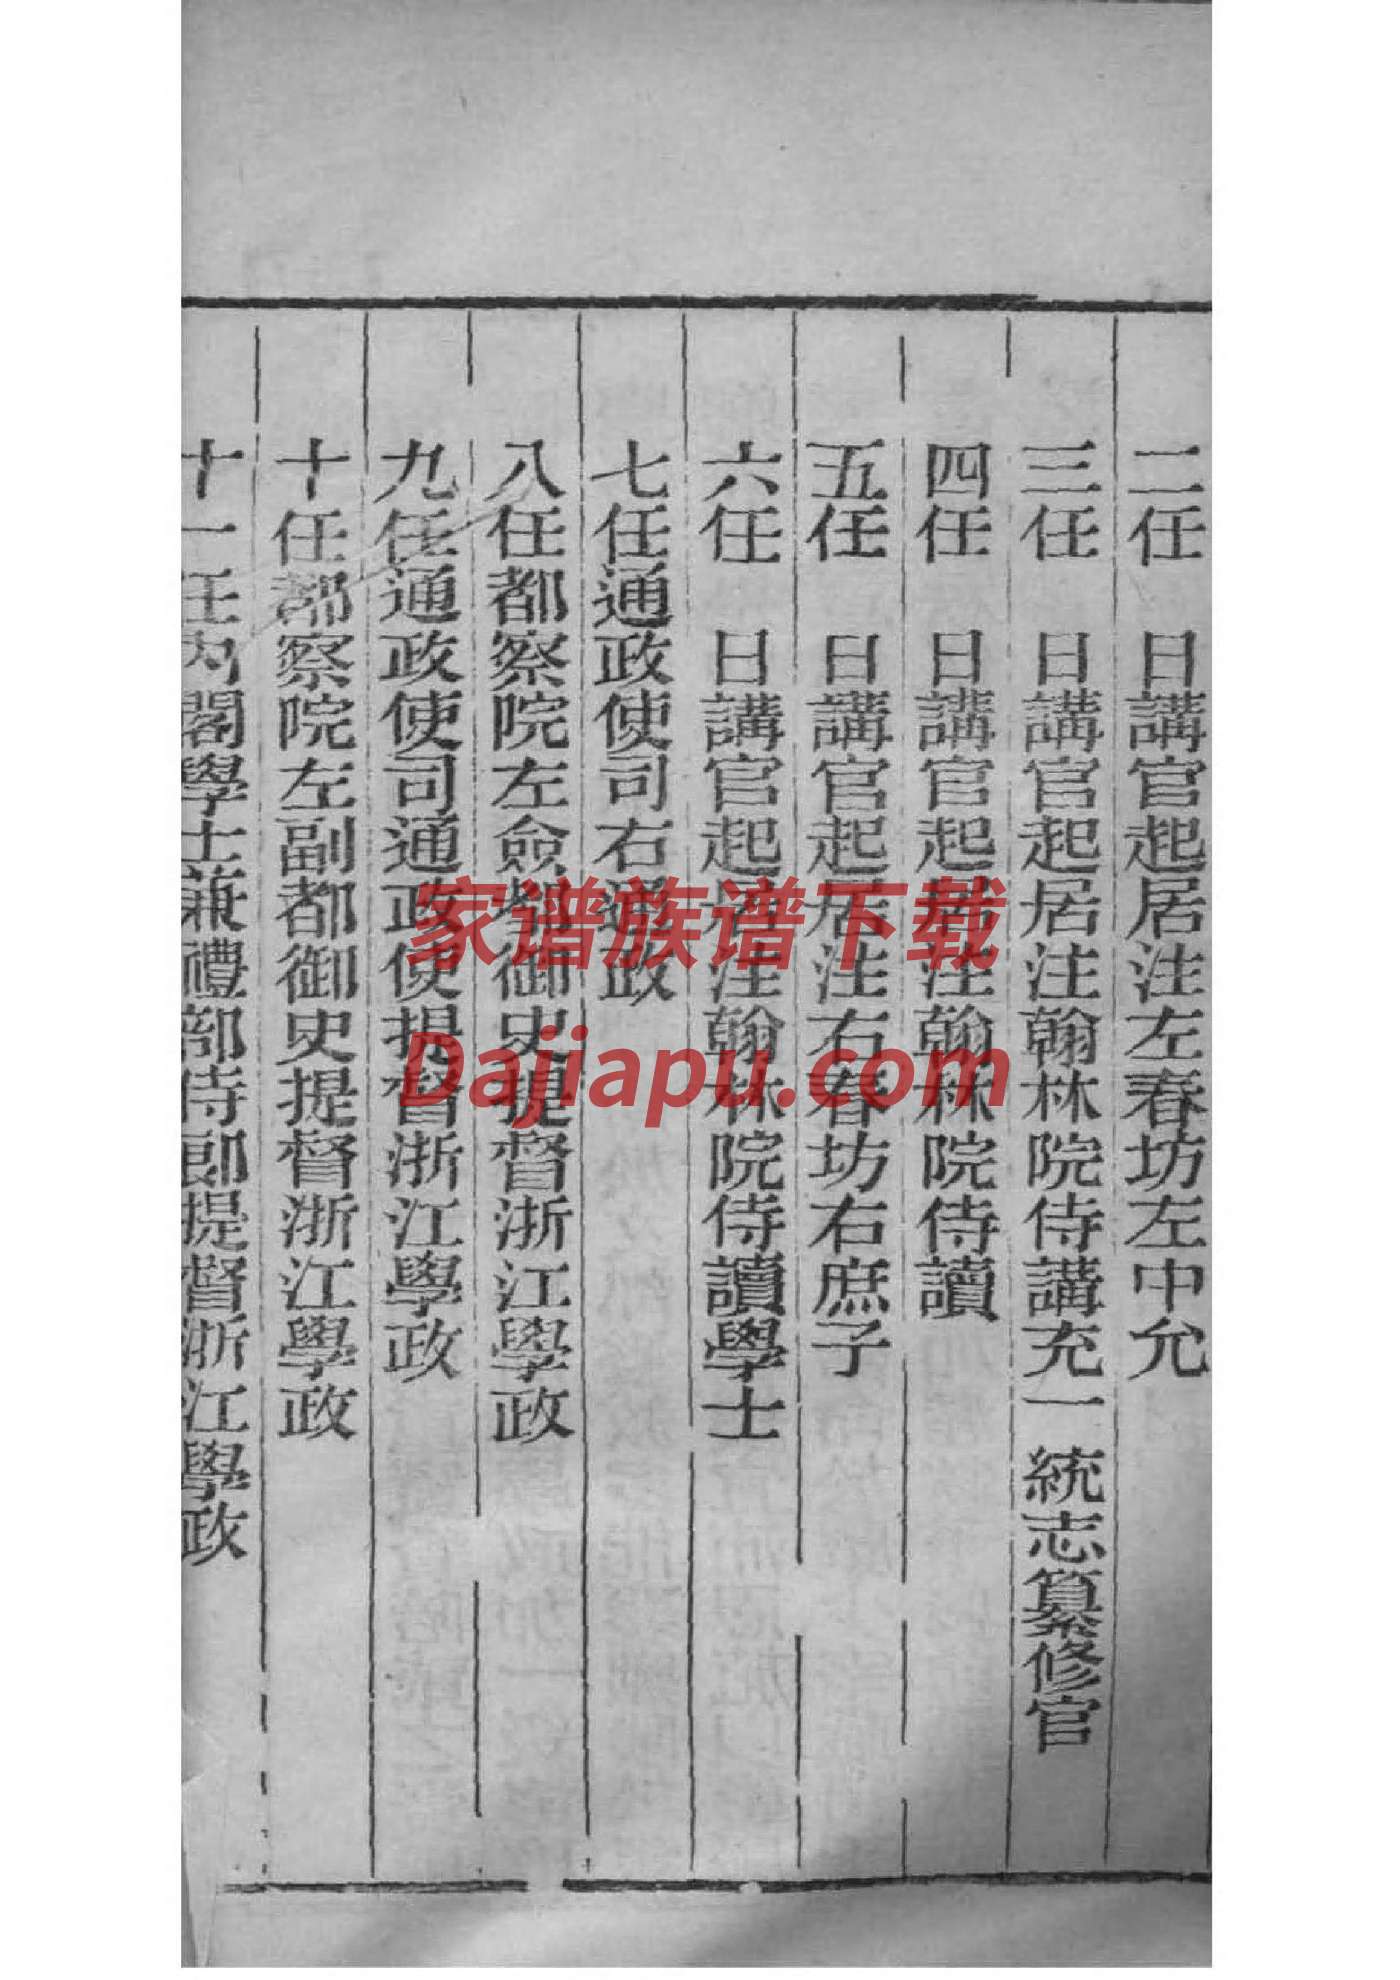 二任　日講官起居注左春坊左中允
三任　日講官起居注翰林院侍講充一統志纂修官
四任　日講官起居注翰林院侍讀
五任　日講官起居注右春坊右庶子
六任　日講官起居注翰林院侍讀學士
七任通政使司右通政
八任都察院左僉都御史提督浙江學政
九任通政使司通政使提督浙江學政
十任都察院左副都御史提督浙江學政
十一任內閣學士兼禮部侍郎提督浙江學政
家谱族谱下载
Dajiapu.com